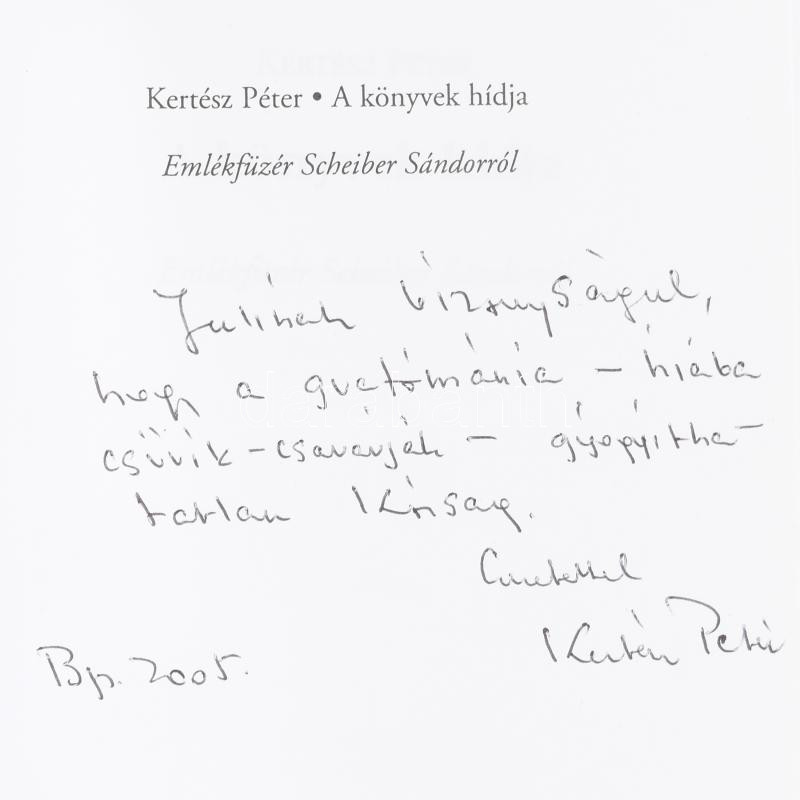 Kertész Péter • A könyvek hídja
Emlékfüzér Scheiber Sándorról
Julinak bizonyságul,
hogy a grafománia – hiába
csűrik-csavarják – gyógyítha-
tatlan kórság.
Szeretettel
Kertész Péter
Bp. 2005.
darabanth